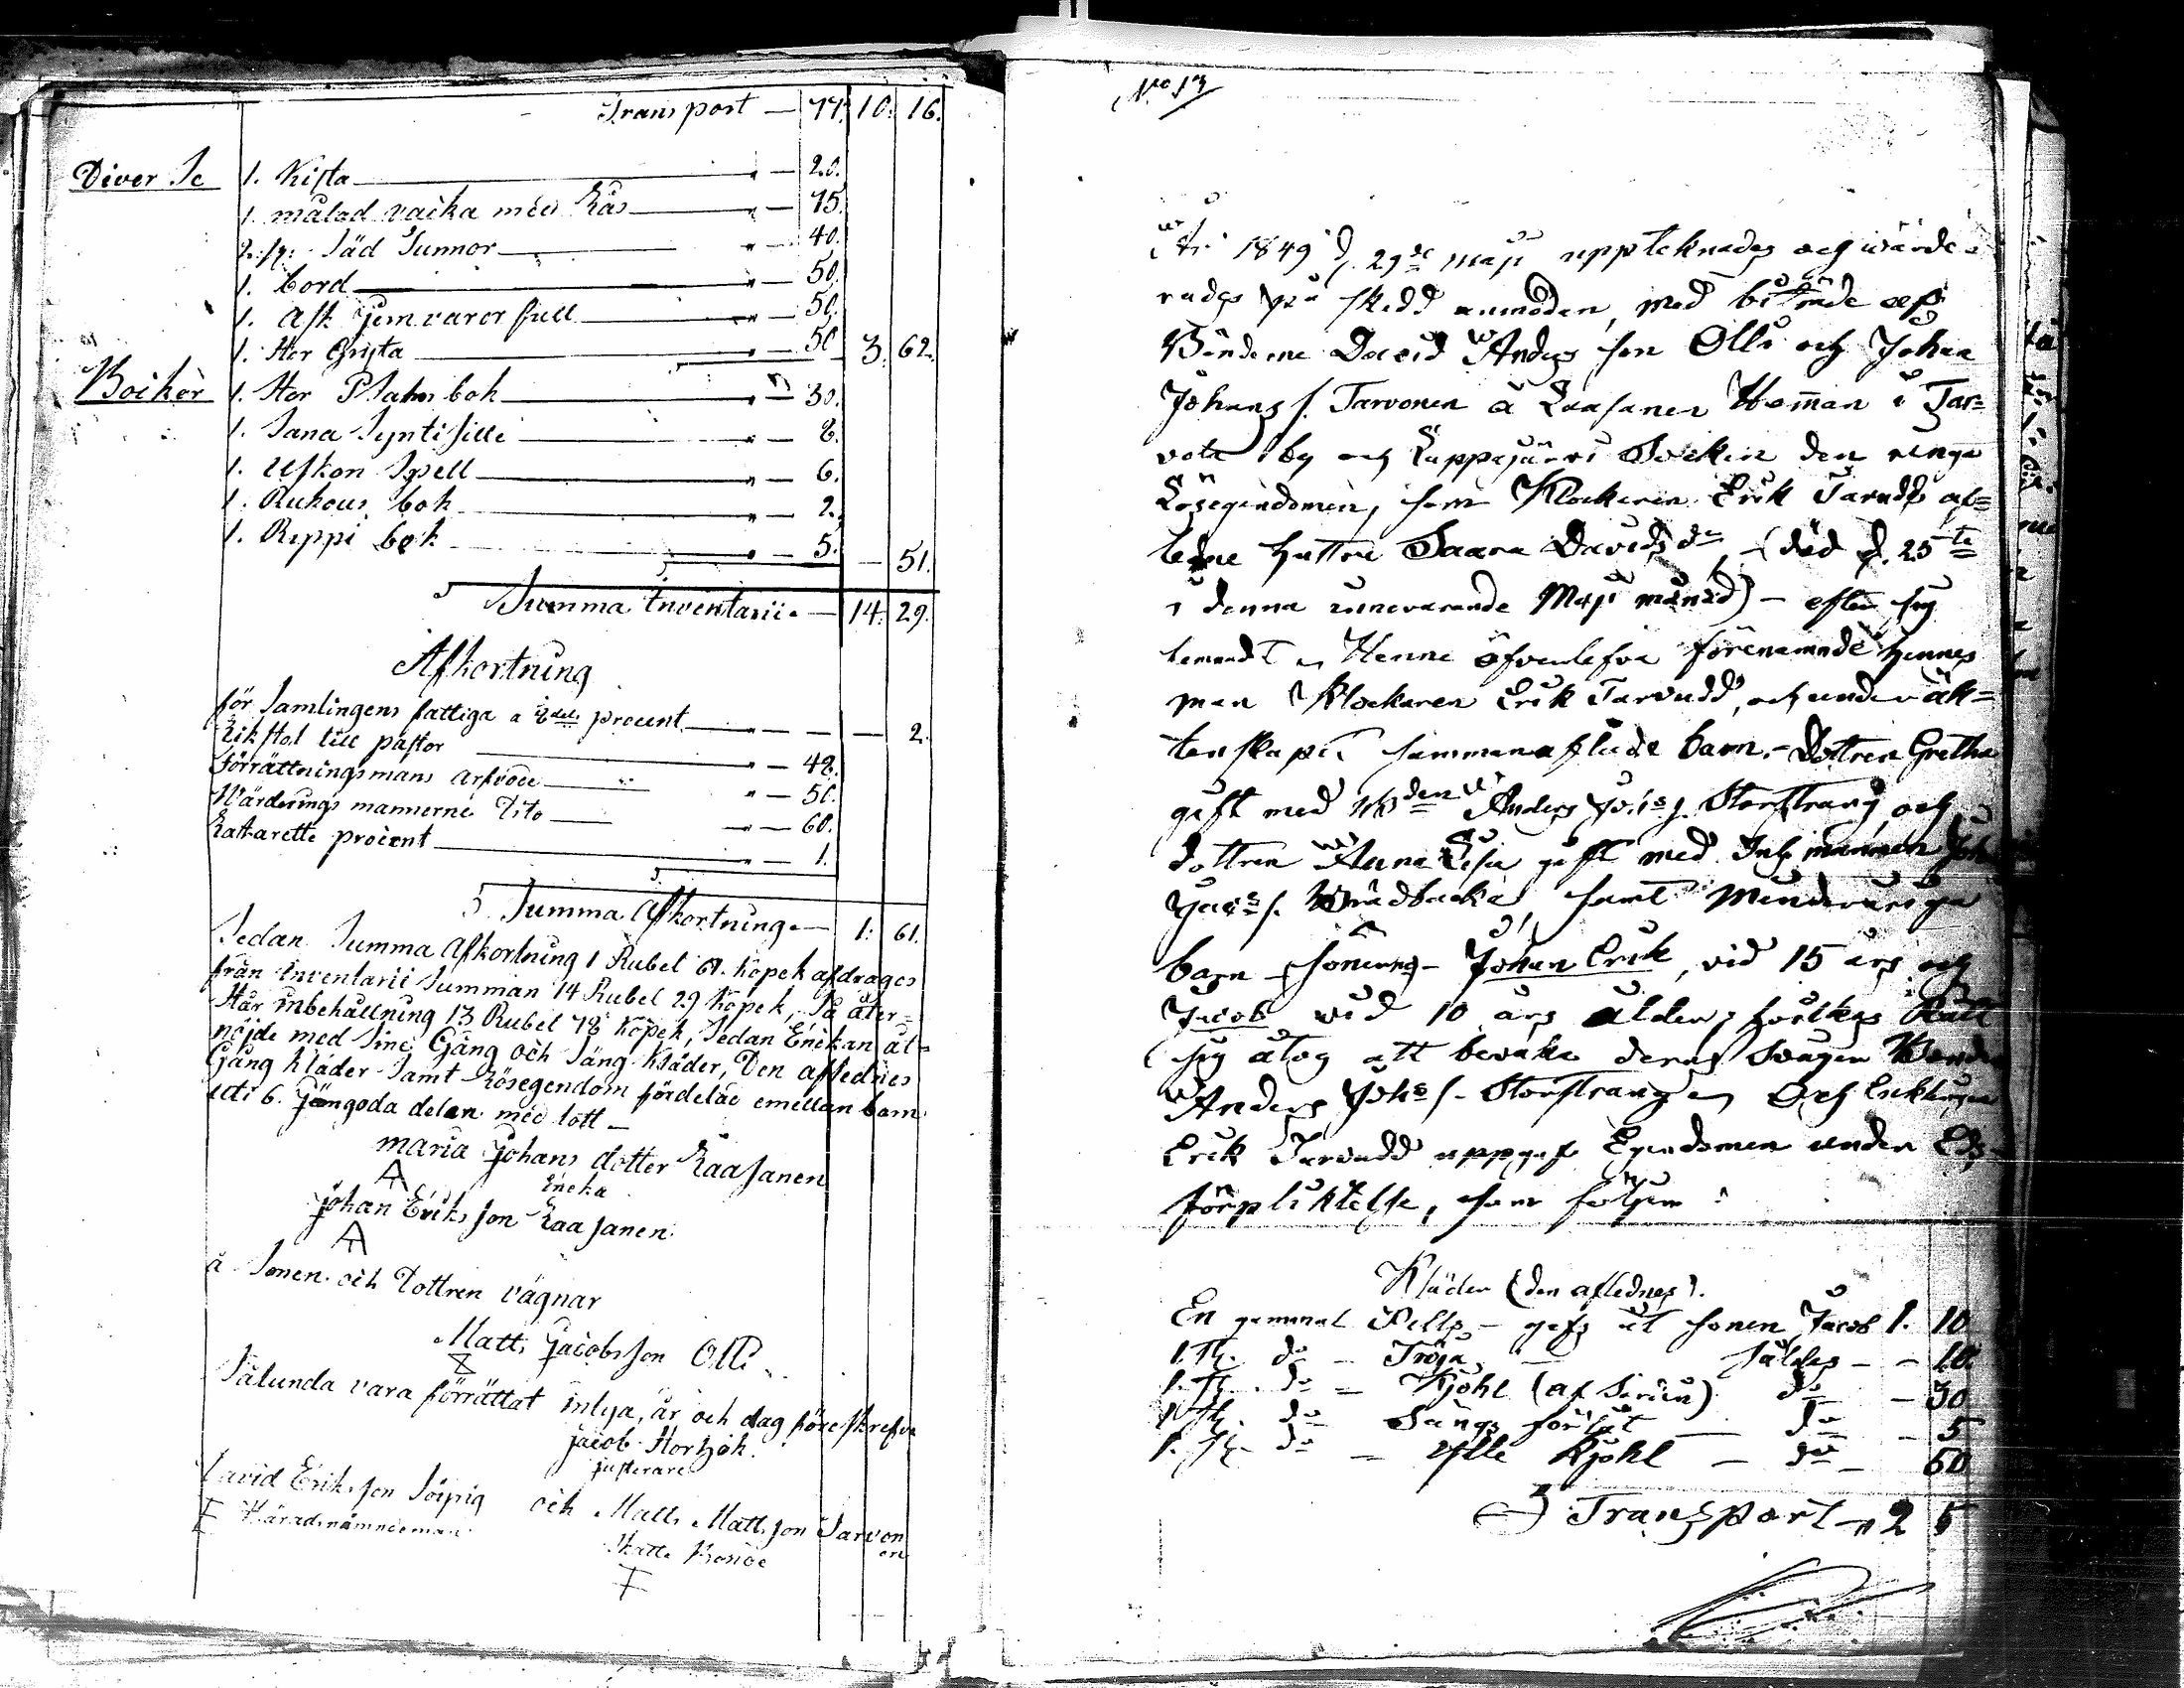 Transport — 77. 10. 16.
Diverse 1. Kista — 20.
1. målad vacka med Lås — 75.
2. st. Säd Tunnor — 40.
1. bord — 50.
1. Ask Jern varor full — 50.
1. Stor Gryta — 50 3. 62.
Böcker 1. Stor Psalm bok — 30.
1. Sana Syntisille — 8.
1. Uskon Spell — 6.
1. Rukous bok — 2.
1. Rippi bok — 5. — 51.
Summa Inventarii — 14. 29.
Afkortning
för Samlingens fattiga a 8dels procent — — 2.
Likstol till pastor — 48.
Förrättningsmans arfvode — 50.
Wärderings mannerne Dito — 60.
procent — 1.
Summa Afkortning — 1. 61.
Sedan Summa Afkortning 1 Rubel 61. kopek afdrages
från Inventarii Summan 14 Rubel 29 kopek, Så åter=
Står inbehållning 13 Rubel 78 kopek, Sedan Enckan åt=
nöjde med Sine Gång och Säng kläder, Den aflednes
Gång kläder Samt Lösegendom fördelde emellan barn
uti 6. Jämgoda delar med lott —
Maria Johans dotter Laasanen
Encka
Johan Eriks son Laasanen
å Sonen och Dottren vägnar
Matts Jacobs son Olli
Sålunda vara förrättat intyga, år och dag föreskrefvo
Jacob
justerare
David Eriks son och Matts Matts son Tarvon
en
Häradsnämndeman Skatte Bonde
No 13
År 1849 d. 29de Maji uppteknades och wärde=
rades på skedd anmodan, med biträde af
Bönderne David Anders son Olli och Johan
Johans s. Tarvonen å Laasanen Homan i Tar=
vola by och Lappajärvi Socken den ringa
Lösegendomen, som Klockaren Erik Tarvudds af=
ledne hustru Saara Davidsdr (död d. 25te
i denna innevarande Maji månad) — efter sig
lemnadt Henne öfverlefva förenämnde hennes
man Klockaren Erik Tarvudd, och under äk=
tenskapet sammanaflade barn, — Dottren Gretha
gift med Anders Joh:s s. Storstrang, och
dottren Anna Lisa gift med Inh. mannen
s. samt Minderåriga
barn — sönerne — Johan Erik, vid 15 års och
Jacob vid 10 års ålder, hvilkas Rätt
sig åtog att bevaka deras Svåger Bonden
Anders Johs s. Storstrang Och Enklingen
Erik Tarvudd uppgaf Egendomen under Eds=
förpliktelse, som följer:
Kläder (den aflednes).
En gammal Pells — gafs åt sonen Jacob 1. 10
1. st. do — Tröja, — såldes — — 10.
1. st. do — Kjohl (af ) do — 30
1. st. do Sängs — do — 5
1. st. do — Ylle Kjohl — do — 50
Transport — 2 5